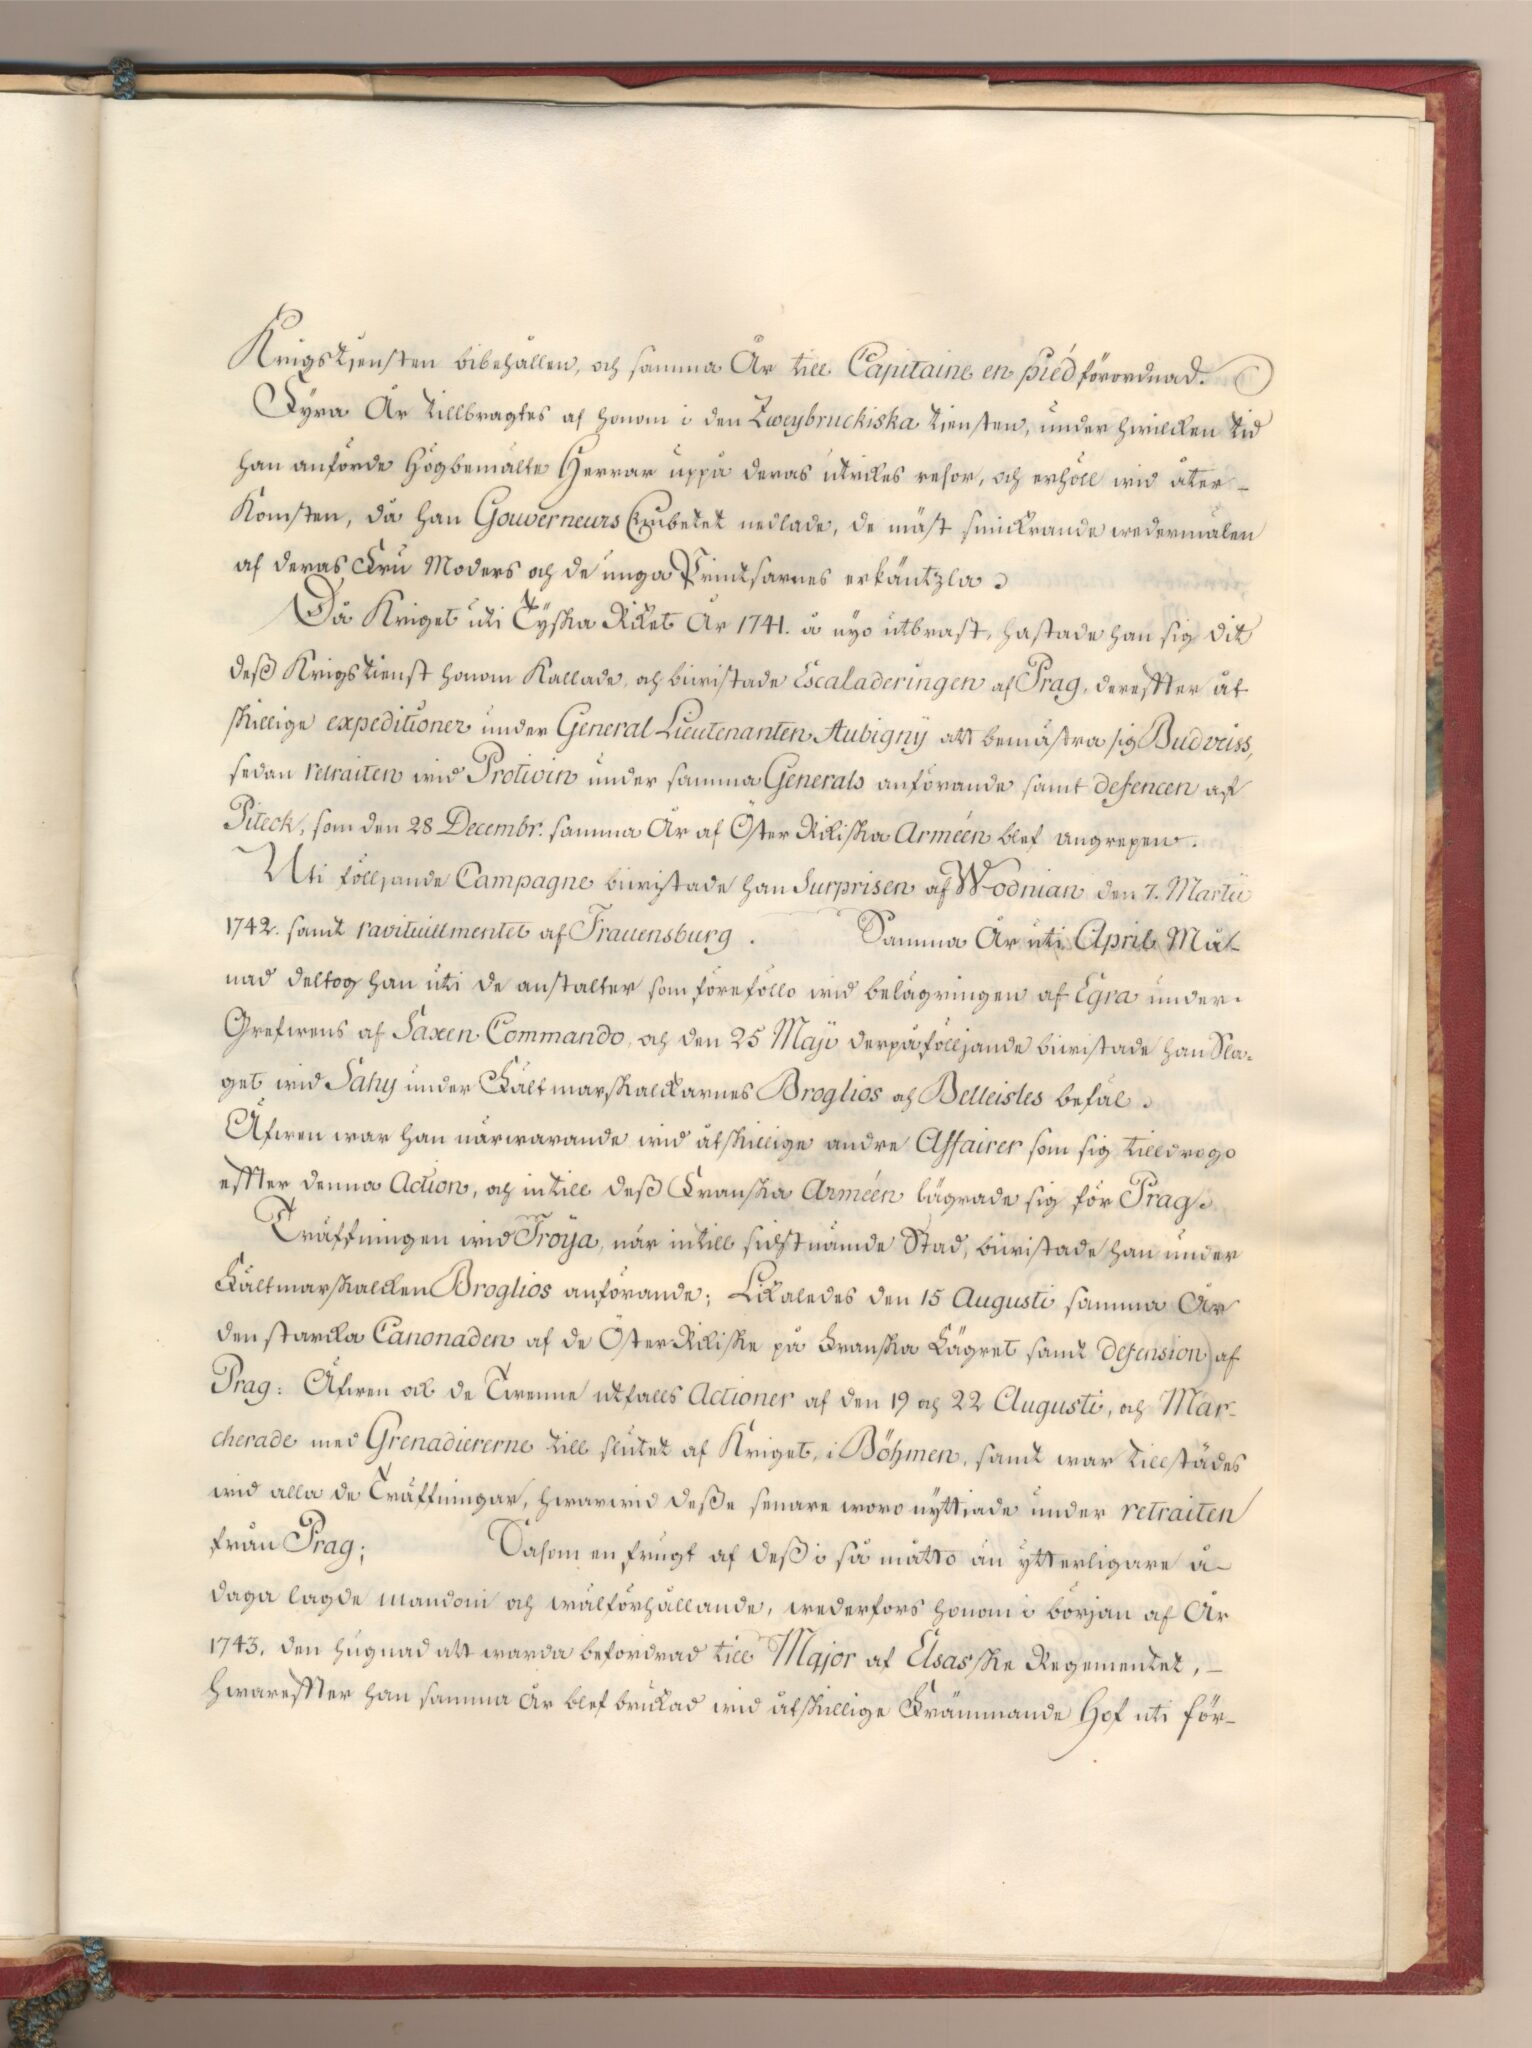 Krigstjensten bibehållen, och samma År till Capitaine en pied förordnad.
Fyra År tillbragtes af honom i den Zweybruckiska tiensten, under hwilcken tid
han anförde Högbemälte Herrar uppå deras utrikes resor, och erhöll wid åter-
komsten, då han Gouverneurs Embetet nedlade, de mäst smickrande wedermälen
af deras Fru Moders och de unga Printsarnes erkäntzla.
Då Kriget uti Tyska Riket År 1741. å nyo utbrast, hastade han sig dit
deß Krigstienst honom kallade, och biwistade Escaladeringen af Prag, dereffter åt-
skillige expeditioner under General Lieutenanten Aubigny att bemästra sig Budveiss,
sedan retraiten wid Protivin under samma Generals anförande samt defencen af
Piteck, som den 28 Decembr. samma År af Öster Rikiska Arméen blef angrepen.
Uti följjande Campagne biwistade han Surprisen af Wodnian den 7. Martii
1742. samt ravituillmentet af Frauensburg. Samma År uti April Må-
nad deltog han uti de anstalter som föreföllo wid belägringen af Egra under
Grefwens af Saxen Commando, och den 25 Maji derpåfölljande biwistade han Sla-
get wid Sahy under Fältmarskalckarnes Broglios och Belleisles befäl.
Äfwen war han närwarande wid åtskillige andre Affairer som sig tilldrogo
effter denna Action, och intill deß Franska Arméen lägrade sig för Prag.
Träffningen wid Troÿa, när intill sidstnämde Stad, biwistade han under
Fältmarskalcken Broglios anförande; Likaledes den 15 Augusti samma År
den starcka Canonaden af de Öster Rikiske på Franska Lägret samt defension af
Prag: Äfwen ock de Twenne utfalls Actioner af den 19 och 22 Augusti, och Mar-
cherade med Grenadiererne till slutet af Kriget, i Böhmen, samt war tillstädes
wid alla de Träffningar, hwarwid deße senare woro nyttiade under retraiten
från Prag; Såsom en frugt af deß i så måtto än ytterligare å-
daga lagde mandom och wälförhållande, wederfors honom i början af År
1743. den hugnad att warda befordrad till Major af Elsasske Regementet,
hwareffter han samma År blef brukad wid åtskillige Främmande Hof uti för-